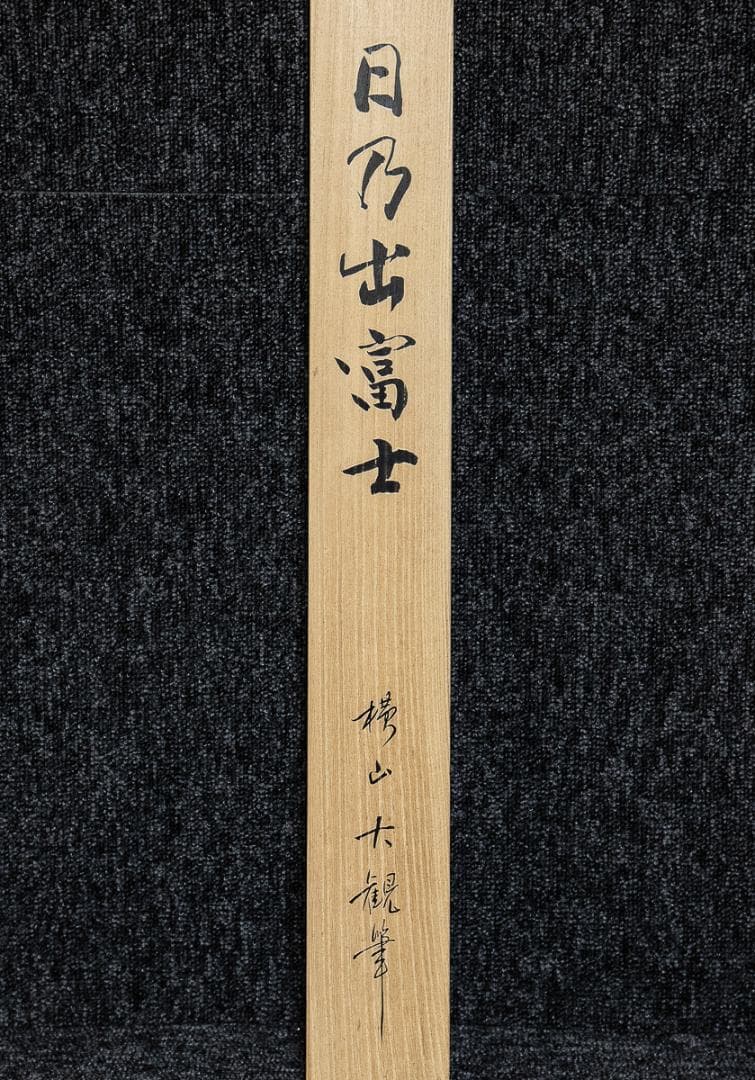 日乃出富士
横山大観筆